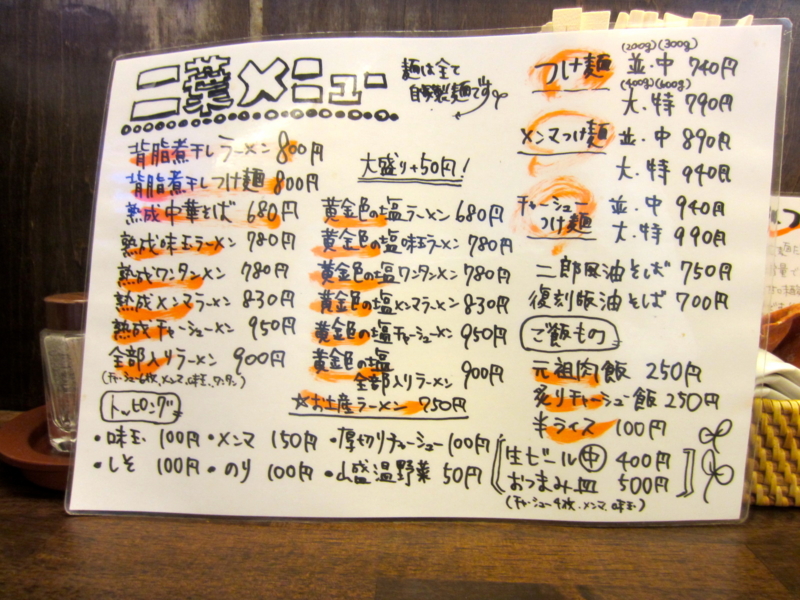 二葉メニュー
麺は全て
自家製麺です
背脂煮干しラーメン 800円
背脂煮干しつけ麺 800円
大盛り+50円!
熟成中華そば 680円
熟成味玉ラーメン 780円
熟成ワンタンメン 780円
熟成メンマラーメン 830円
熟成チャーシューメン 950円
全部入りラーメン 900円
(チャーシュー6枚、メンマ、味玉、ワンタン)
黄金色の塩ラーメン 680円
黄金色の塩味玉ラーメン 780円
黄金色の塩ワンタンメン 780円
黄金色の塩メンマラーメン 830円
黄金色の塩チャーシューメン 950円
黄金色の塩
全部入りラーメン 900円
☆お土産ラーメン 750円
(200g)(300g)
つけ麺 並・中 740円
(400g)(600g)
大・特 790円
メンマつけ麺 並・中 890円
大・特 940円
チャーシュー
つけ麺 並・中 940円
大・特 990円
二郎風油そば 750円
復刻版油そば 700円
ご飯もの
元祖肉飯 250円
炙りチャーシュー飯 250円
半ライス 100円
トッピング
・味玉 100円 ・メンマ 150円 ・厚切りチャーシュー 100円
・しそ 100円 ・のり 100円 ・山盛温野菜 50円
生ビール(中) 400円
おつまみ皿 500円
(チャーシュー4枚、メンマ、味玉)